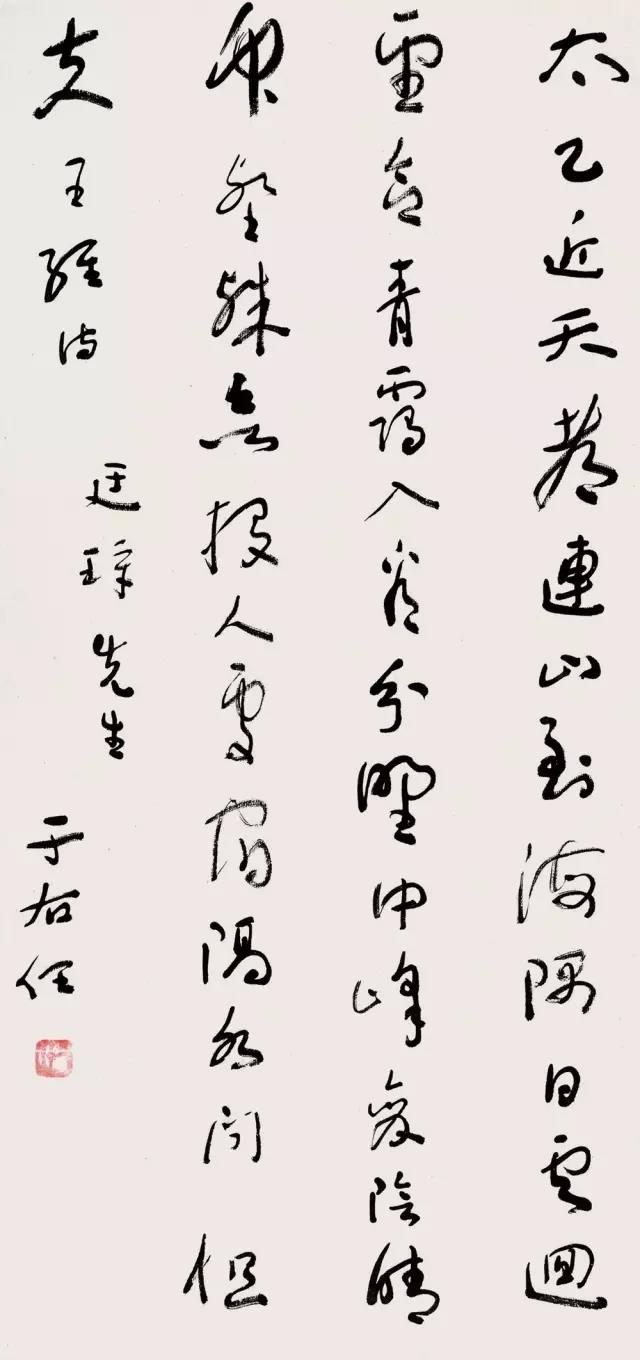 太乙近天都連山到海隅白雲迴
望合青靄入看分野中峰變陰晴
衆壑殊投人處宿隔水問樵
夫王維詩
廷璋先生
于右任